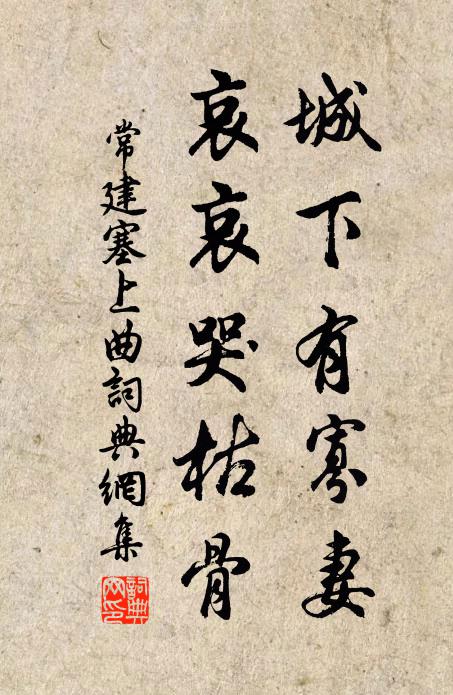 城下有寡妻
哀哀哭枯骨
常建塞上曲詞典網集
詞典網印